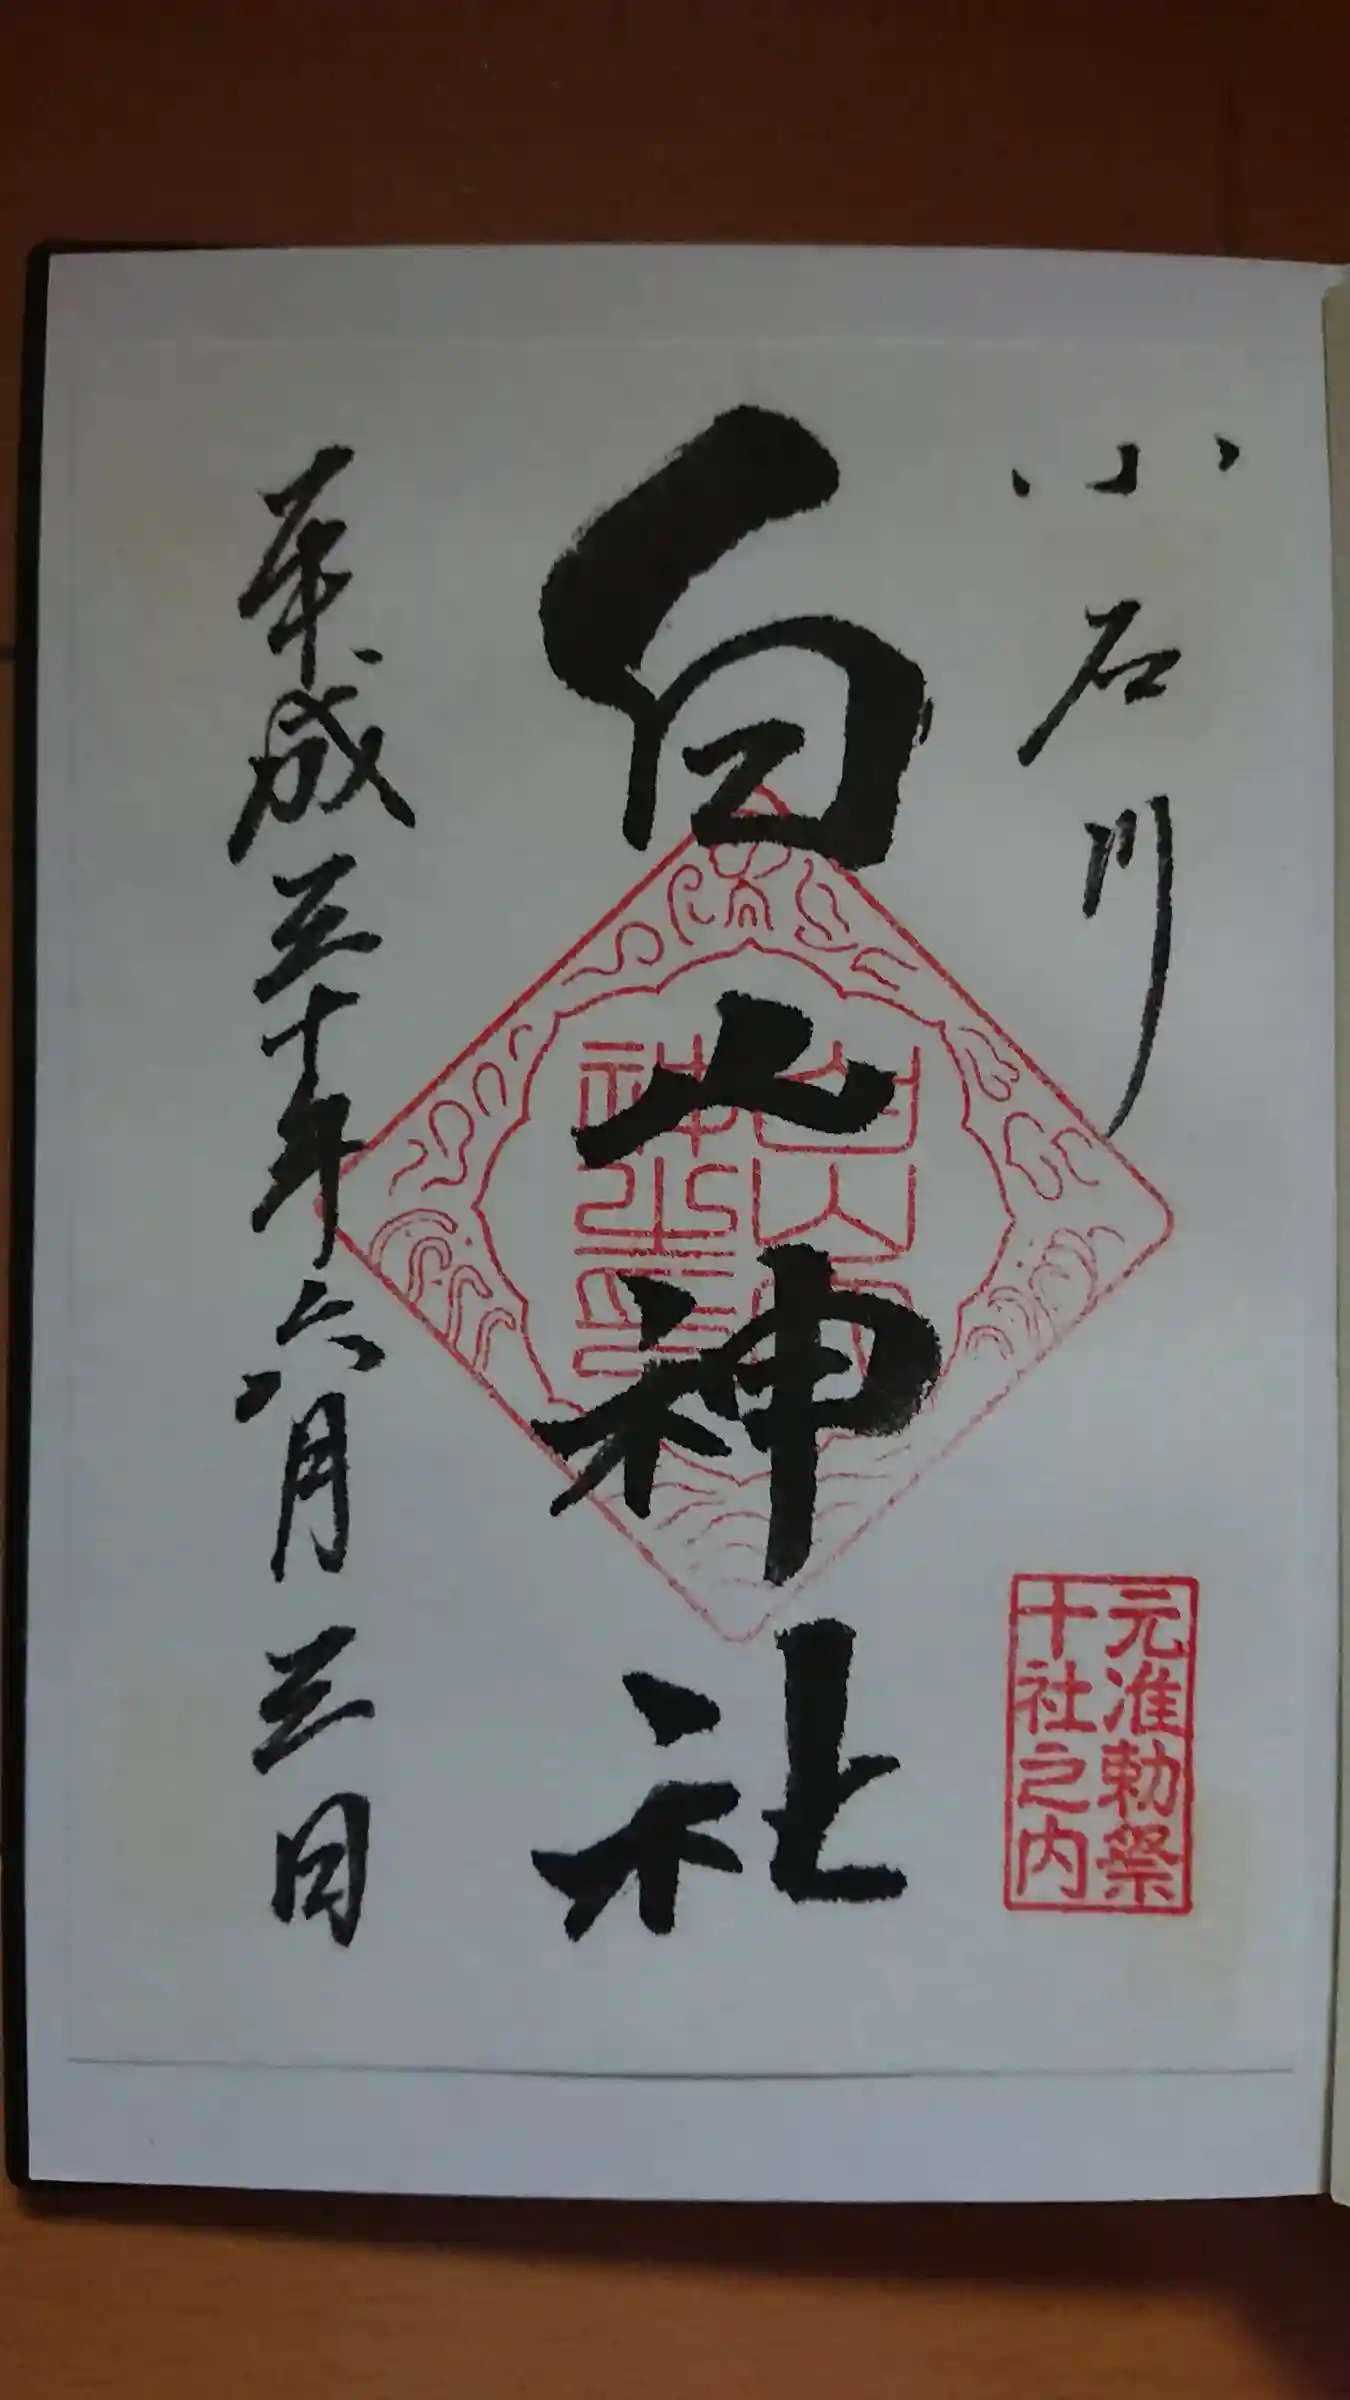 小石川
元准勅祭
十社之内
白山神社
平成三十年六月三日